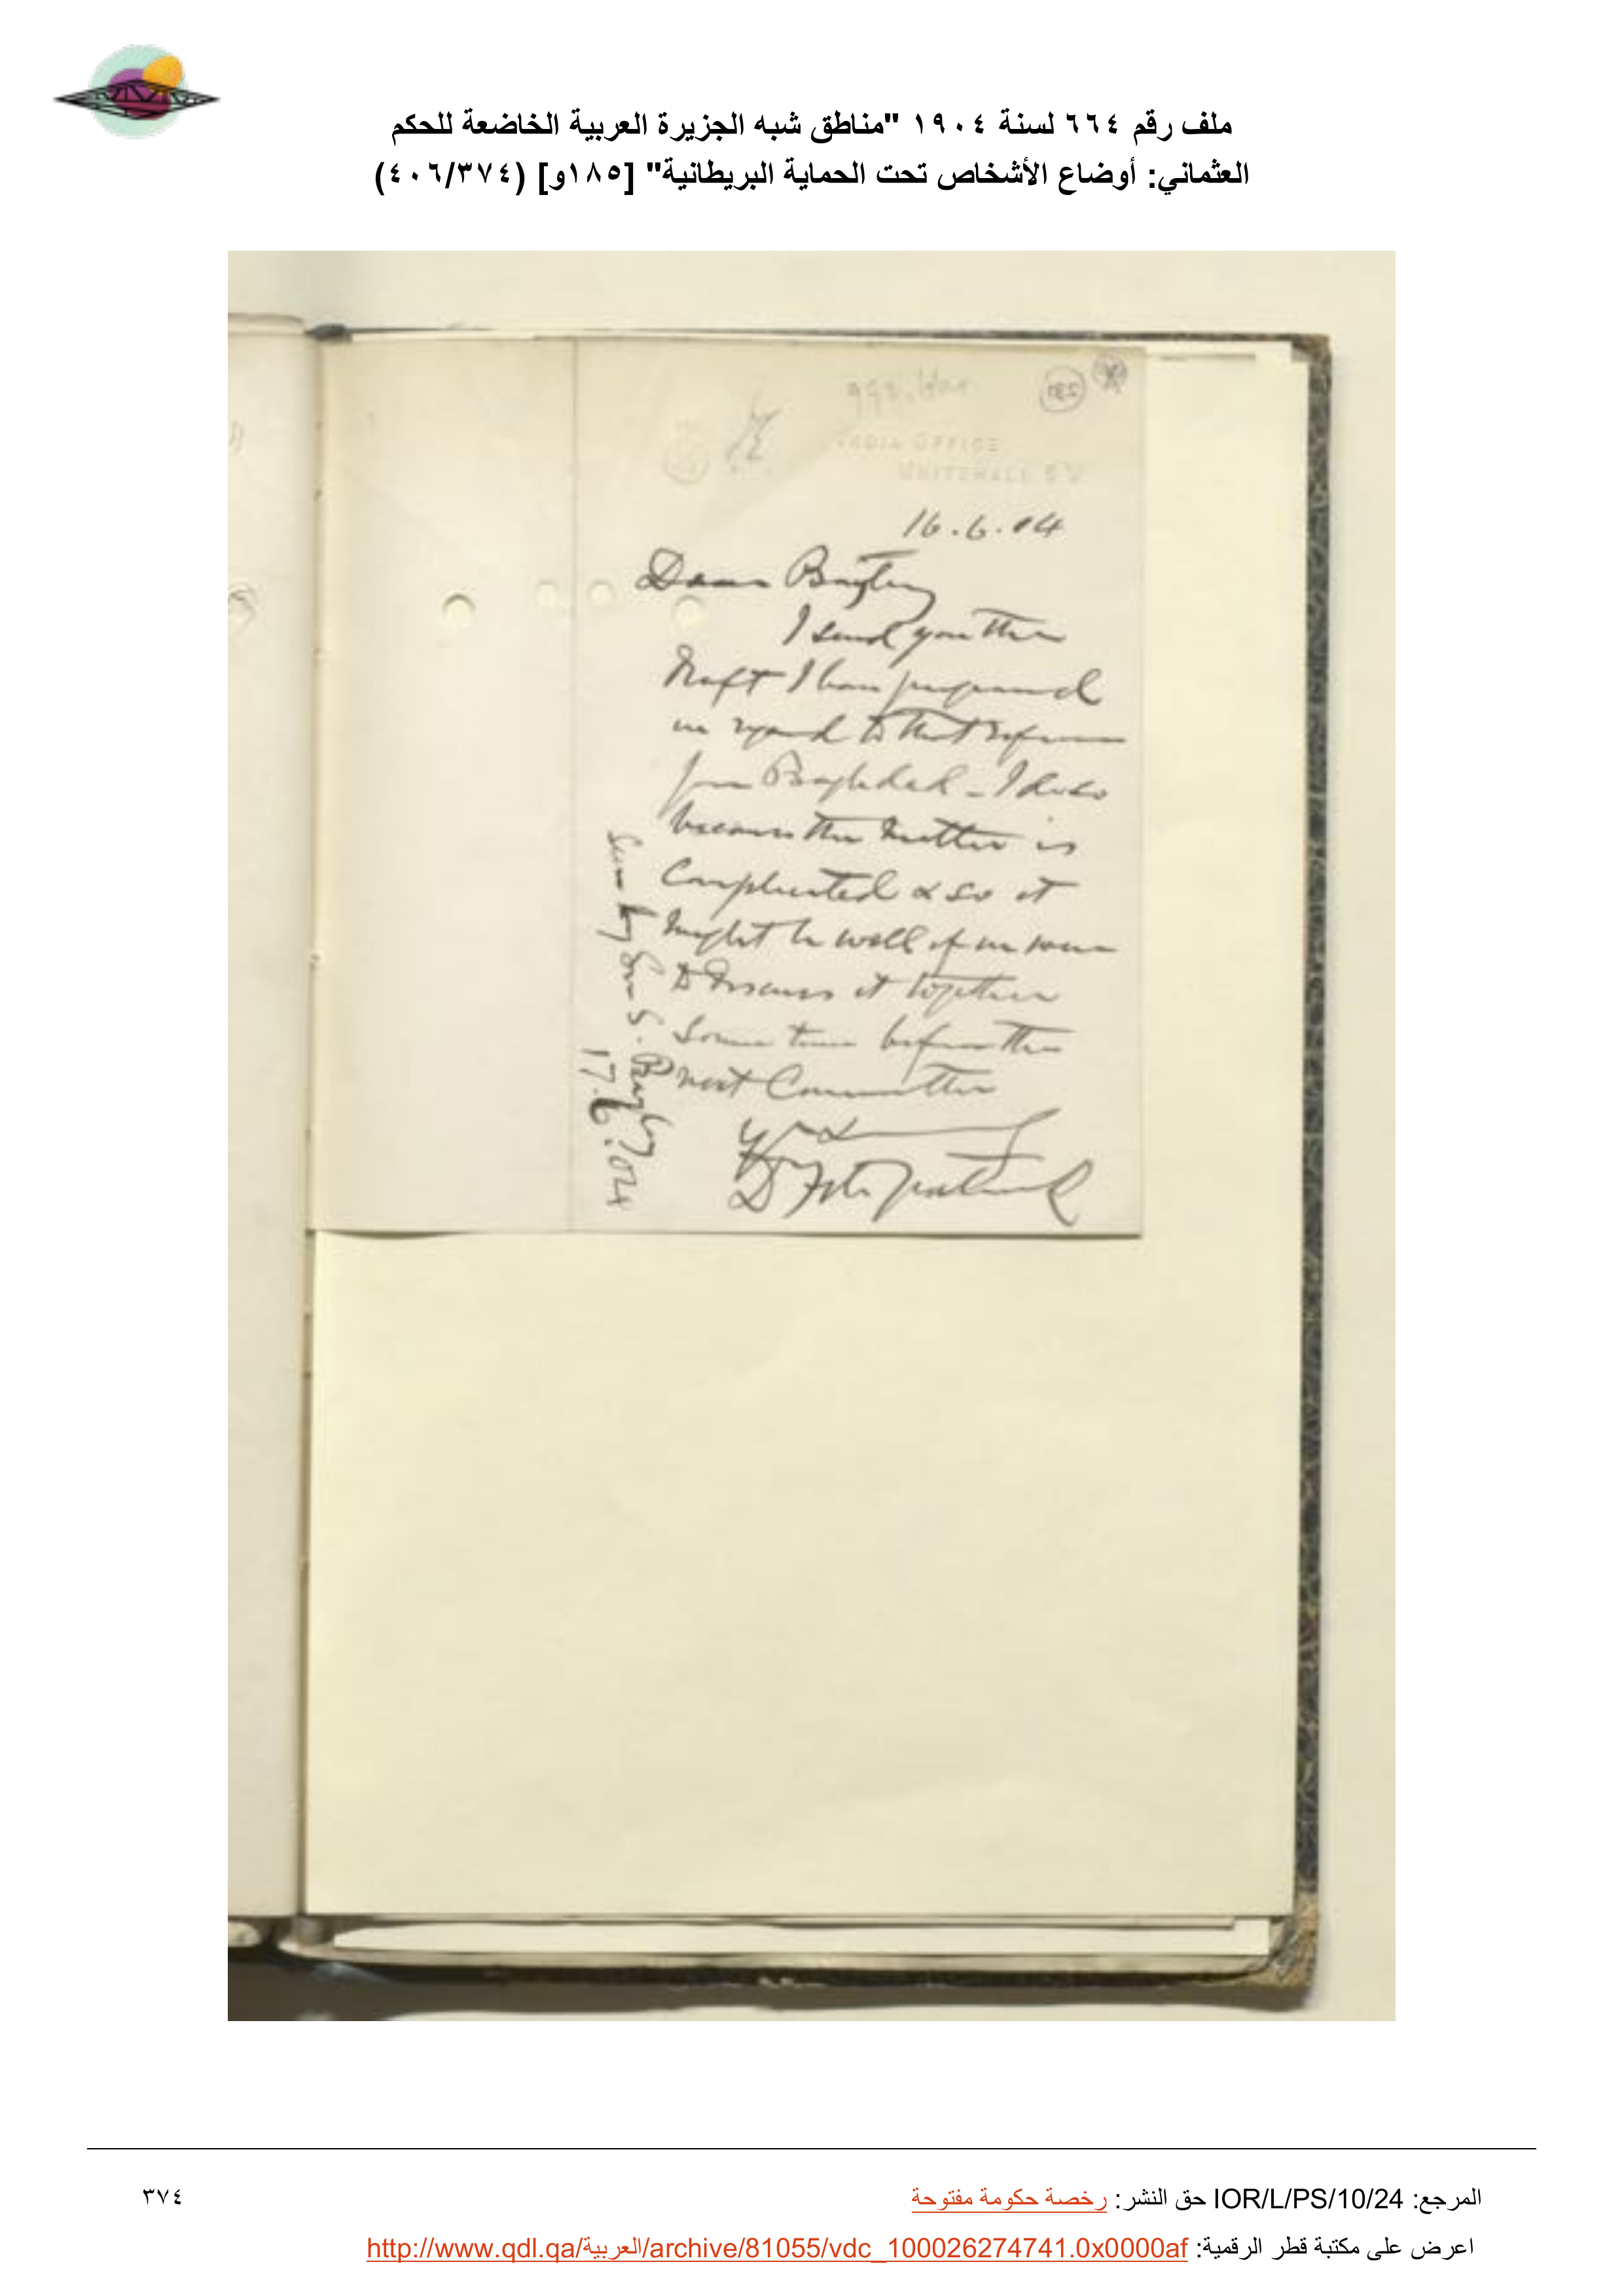 ملف رقم ٦٦٤ لسنة ١٩٠٤ "مناطق شبه الجزيرة العربية الخاضعة للحكم
العثماني: أوضاع الأشخاص تحت الحماية البريطانية" [١٨٥و] (٤٠٦/٣٧٤)
185
INDIA OFFICE
WHITEHALL S.W.
16.6.04
Dear Bayley
I send you the
draft I have prepared
in regard to that reference
from Baghdad - I do so
because the matter is
complicated & so it
might be well if we were
to discuss it together
some time before the
next Committee
D Fitzpatrick
Seen by Sir S. Bayley
17.6.04
المرجع: IOR/L/PS/10/24 حق النشر: رخصة حكومة مفتوحة
٣٧٤
اعرض على مكتبة قطر الرقمية: http://www.qdl.qa/العربية/archive/81055/vdc_100026274741.0x0000af